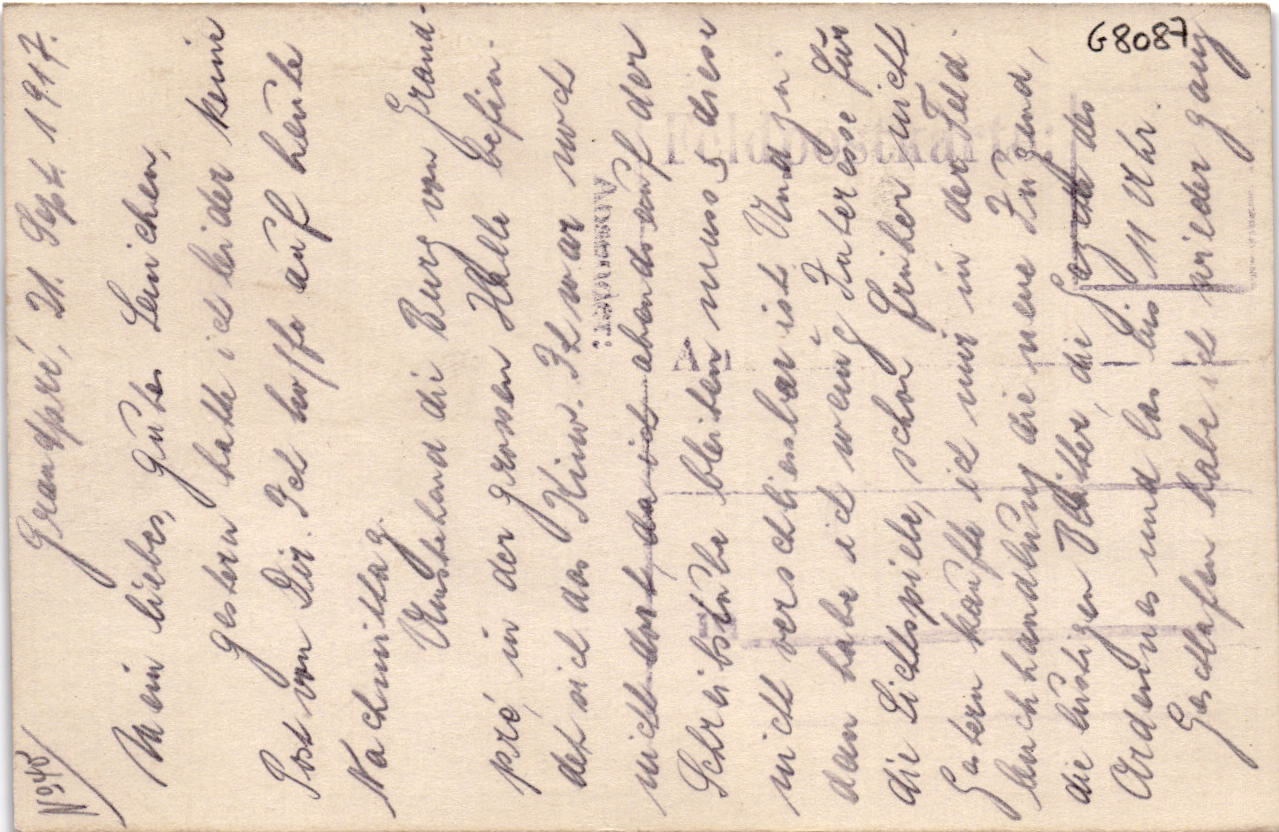 G8087
No 345
Grandpré, 21. Sept. 1917.
Mein liebes, gutes Lenchen,
Gestern hatte ich leider kein
Post von Dir. Ich hoffe auf heute
Nachmittag.
Umstehend die Burg von Grand-
pré, in der grossen Halle befin-
det sich das Kino. Ich war noch
nicht dort, da ich abends auf der
Schreibstube bleiben muss, diese
nicht verschliessbar ist. Und zu-
dem habe ich wenig Interesse für
die Lichtspiele, schon früher nicht.
Gestern kaufte ich mir in der Feld-
buchhandlung die neue Jugend,
die lustigen Blätter, die Gazette des
Ardennes und las bis 11 Uhr.
Geschlafen habe ich wieder ganz
Feldpostkarte
An
Absender: